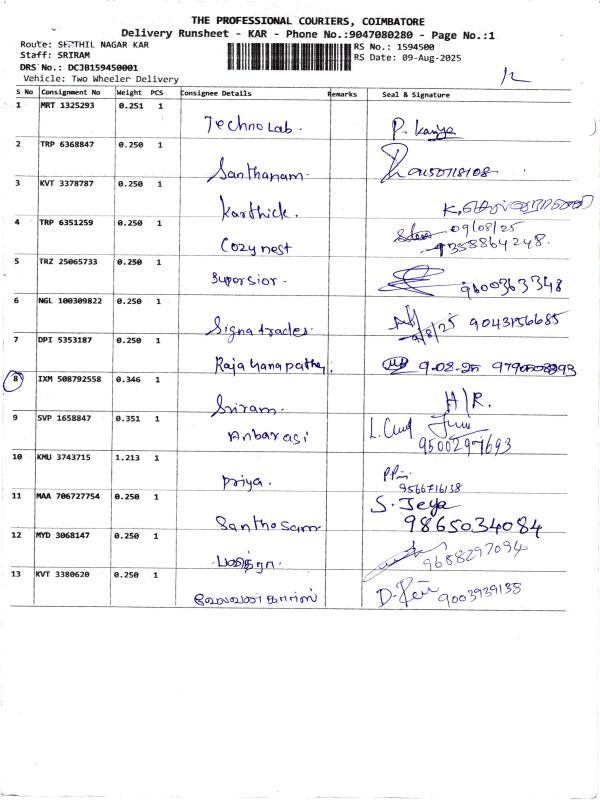 THE PROFESSIONAL COURIERS, COIMBATORE
Delivery Runsheet - KAR - Phone No.:9047080280 - Page No.:1
Route: SENTHIL NAGAR KAR
RS No.: 1594500
Staff: SRIRAM
RS Date: 09-Aug-2025
DRS No.: DCJB159450001
Vehicle: Two Wheeler Delivery
S No Consignment No Weight PCS Consignee Details Remarks Seal & Signature
1 MRT 1325293 0.251 1
Techno Lab. P. Kaniya
2 TRP 6368847 0.250 1
Santhanam.
3 KVT 3378787 0.250 1
Karthick.
4 TRP 6351259 0.250 1
09/08/25
Cozynest 9358864248.
5 TRZ 25065733 0.250 1
Supersior. 9600363348
6 NGL 100309822 0.250 1
Signa trades. 9/8/25 9043156685
7 DPI 5353187 0.250 1
9-08-25
8 IXM 508792558 0.346 1
Sriram. H/R.
9 SVP 1658847 0.351 1
Anbarasi
9500297693
10 KMU 3743715 1.213 1
Priya.
9566716138
11 MAA 706727754 0.250 1
S. Jeya
Santhosam 9865034084
12 MYD 3068147 0.250 1
பவித்ரா. 9688297094
13 KVT 3380620 0.250 1
9003939138